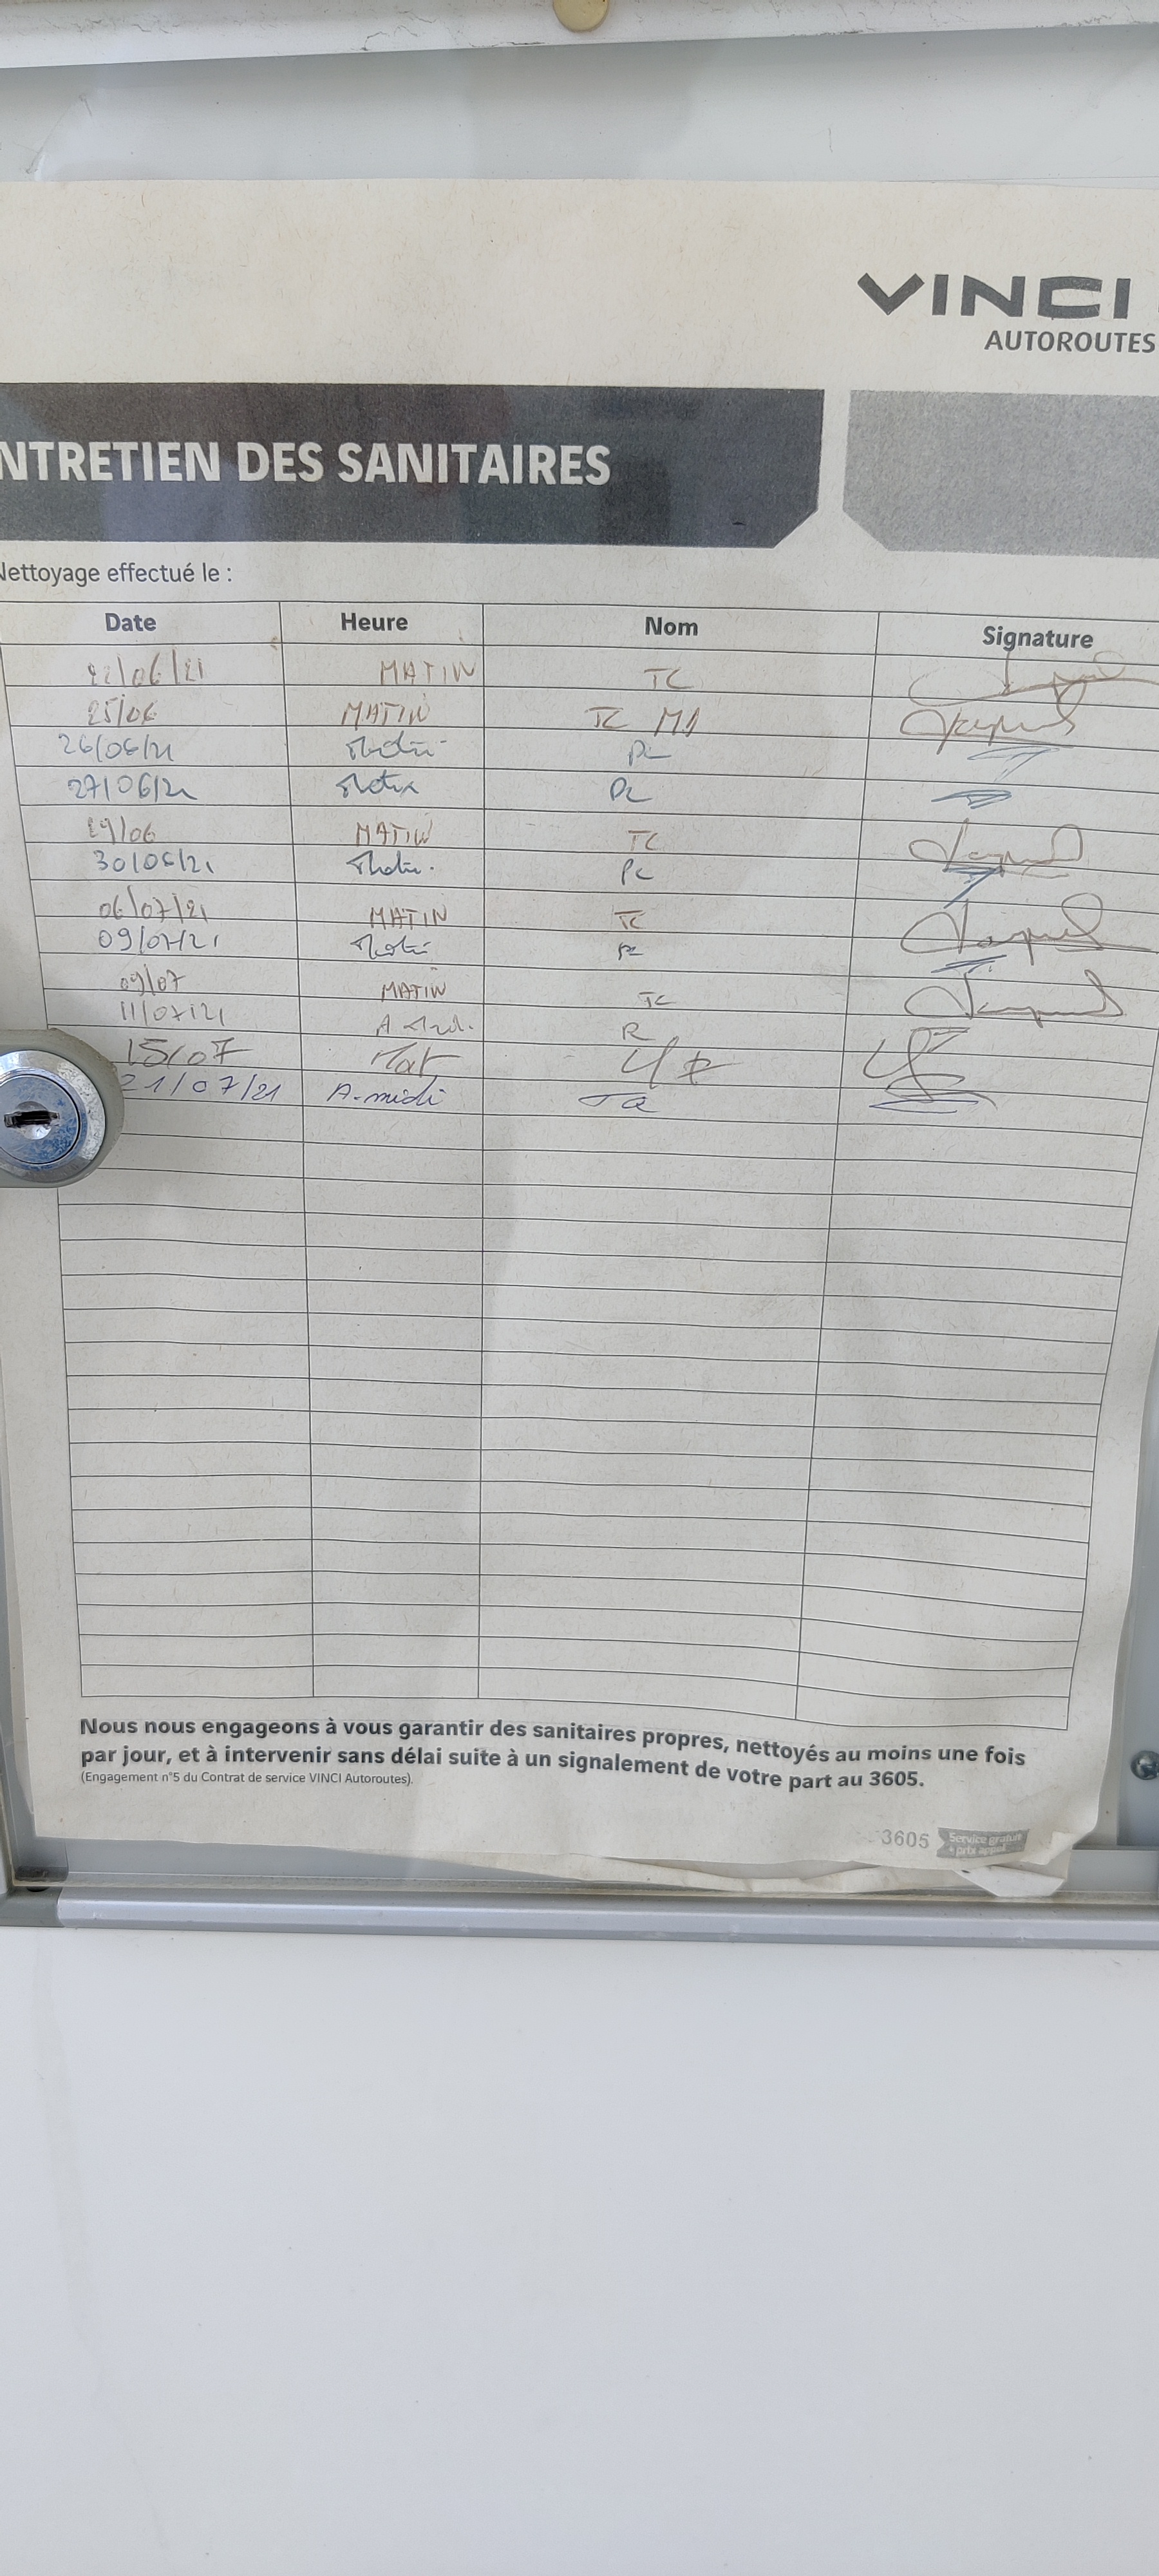 VINCI
AUTOROUTES
NTRETIEN DES SANITAIRES
Nettoyage effectué le :
Date Heure Nom Signature
22/06/21 MATIN TC
25/06 MATIN TC M1
26/06/21 Matin PC
27/06/21 Matin PC
29/06 MATIN TC
30/06/21 Matin. PC
06/07/21 MATIN TC
09/07/21 Matin PC
09/07 MATIN TC
11/07/21 A
15/07 Mat
21/07/21 A-midi
Nous nous engageons à vous garantir des sanitaires propres, nettoyés au moins une fois
par jour, et à intervenir sans délai suite à un signalement de votre part au 3605.
(Engagement n°5 du Contrat de service VINCI Autoroutes).
3605 Service gratuit
+ prix appel